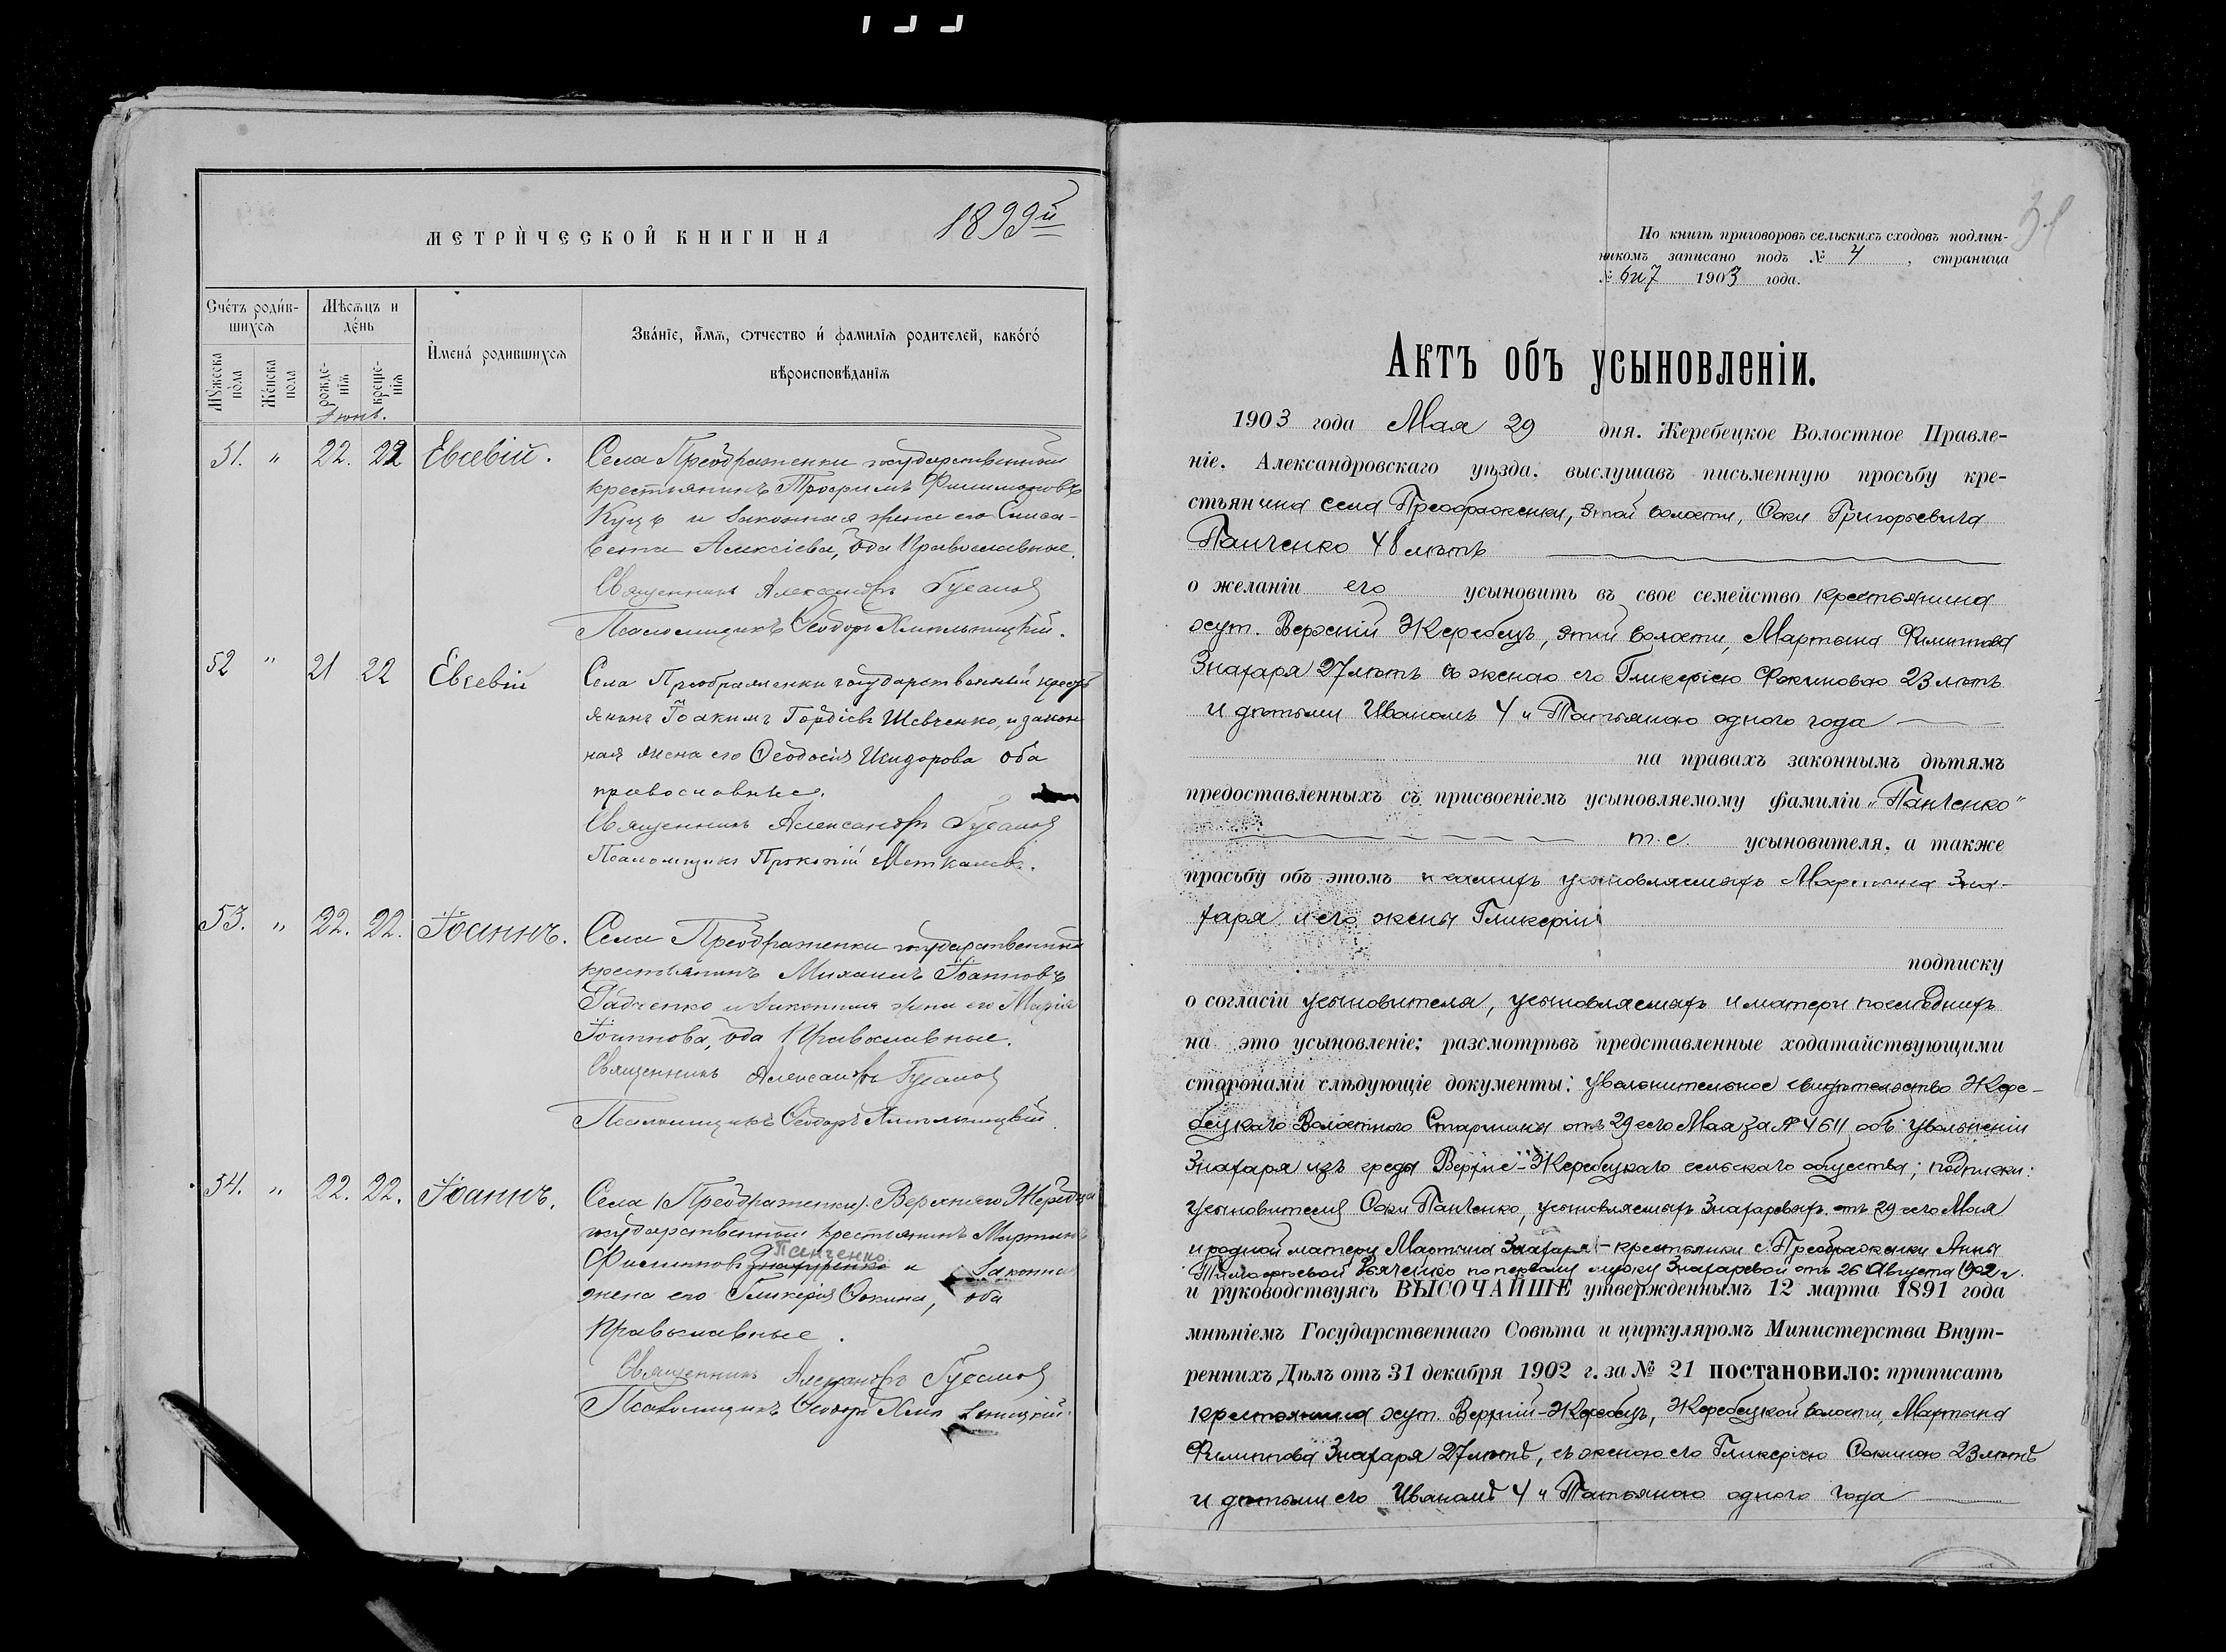 МЕТРИ́ЧЕСКОЙ КНИГИ НА 1899й
Сче́тъ роди́вшихсѧ
Мѣсѧцъ и де́нь
И҆мена́ родившихсѧ
Зва́нїе, и҆́мѧ, ѻтчество и҆ фамилїѧ родителей, како́гѡ́ вѣроисповѣданїѧ
Мꙋжеска по́ла
Же́нска пола
рожденїѧ
крещенїѧ
Іюнь.
51. " 22. 22 Евсевій.
Села Преображенки государственный
крестьянинъ Трофимъ Филимоновъ
Куцъ и законная жена его Елиса-
вета Алексіева, оба Православные.
Священникъ Александръ Гусаковъ
Псаломщикъ Ѳеодоръ Хмельницкій.
52 " 21 22 Евсевій
Села Преображенки государственный крест
янинъ Іоакимъ Гордіевъ Шевченко, и закон
ная жена его Ѳеодосія Исидорова оба
православные.
Священникъ Александръ Гусаковъ
Псаломщикъ Прокопій
53. " 22. 22. Іоаннъ.
Села Преображенки государственный
крестьянинъ Михаилъ Іоанновъ
Радченко и законная жена его Марія
Іоаннова, оба Православные.
Священникъ Александръ Гусаковъ
Псаломщикъ Ѳеодоръ Хмельницкій.
54. " 22. 22. Іоаннъ.
Села (Преображенки). Верхняго Жеребца
государственный крестьянинъ Мартинъ
Панченко
Филиповъ и законная
жена его Гликерія Ѳокина, оба
Православные.
Священникъ Александръ Гусаковъ
Псаломщикъ Ѳеодоръ Хмельницкій.
31
По книгѣ приговоровъ сельскихъ сходовъ подлин-
никомъ записано подъ № 4, страница
№ 6и7 1903 года.
Актъ объ усыновленіи.
1903 года Мая 29 дня. Жеребецкое Волостное Правле-
ніе, Александровскаго уѣзда, выслушавъ письменную просьбу кре-
стьянина села Преображенки, этой волости, Ѳоки Григорьевича
Панченко 48 лѣтъ
о желаніи его усыновить въ свое семейство крестьянина
хут. Верхній Жеребецъ, этой волости, Мартына Филиппова
Знахаря 27 лѣтъ съ женою его Гликеріею Фокиновою 23 лѣтъ
и дѣтьми Иваномъ 4 и Татьяною одного года
на правахъ законнымъ дѣтямъ
предоставленныхъ съ присвоеніемъ усыновляемому фамиліи „Панченко"
т.е. усыновителя, а также
просьбу объ этомъ и самихъ усыновляемыхъ Мартына Зна-
харя и его жены Гликеріи
подписку
о согласіи усыновителя, усыновляемыхъ и матери послѣднихъ
на это усыновленіе; разсмотрѣвъ представленные ходатайствующими
сторонами слѣдующіе документы: увольнительное свидѣтельство Жере-
бецкаго Волостного Старшины отъ 29 сего Мая за № 4611 объ увольненіи
Знахаря изъ среды Верхне-Жеребецкаго сельскаго общества; подписки:
усыновителя Ѳоки Панченко, усыновляемыхъ Знахаревыхъ отъ 29 сего Мая
и родной матери Мартына Знахаря - крестьянки с. Преображенки Анны
Тимофѣевой Дяченко по первому мужу Знахаревой отъ 26 Августа 1902 г.
и руководствуясь ВЫСОЧАЙШЕ утвержденнымъ 12 марта 1891 года
мнѣніемъ Государственнаго Совѣта и циркуляромъ Министерства Внут-
реннихъ Дѣлъ отъ 31 декабря 1902 г. за № 21 постановило: приписать
крестьянина хут. Верхній-Жеребецъ, Жеребецкой волости, Мартына
Филиппова Знахаря 27 лѣтъ, съ женою его Гликеріею Ѳокиною 23 лѣтъ
и дѣтьми его Иваномъ 4 и Татьяною одного года